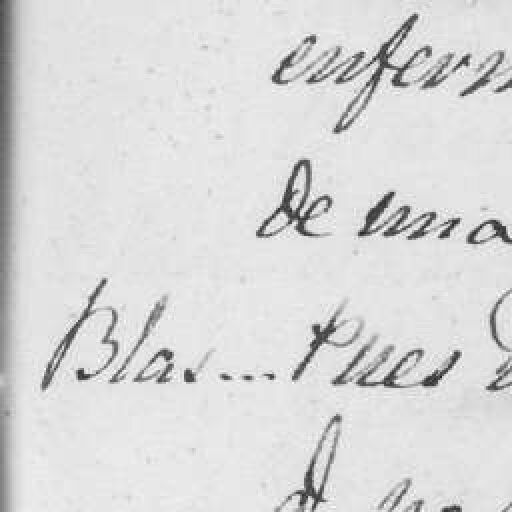 enferm
de una
Blas... Pues